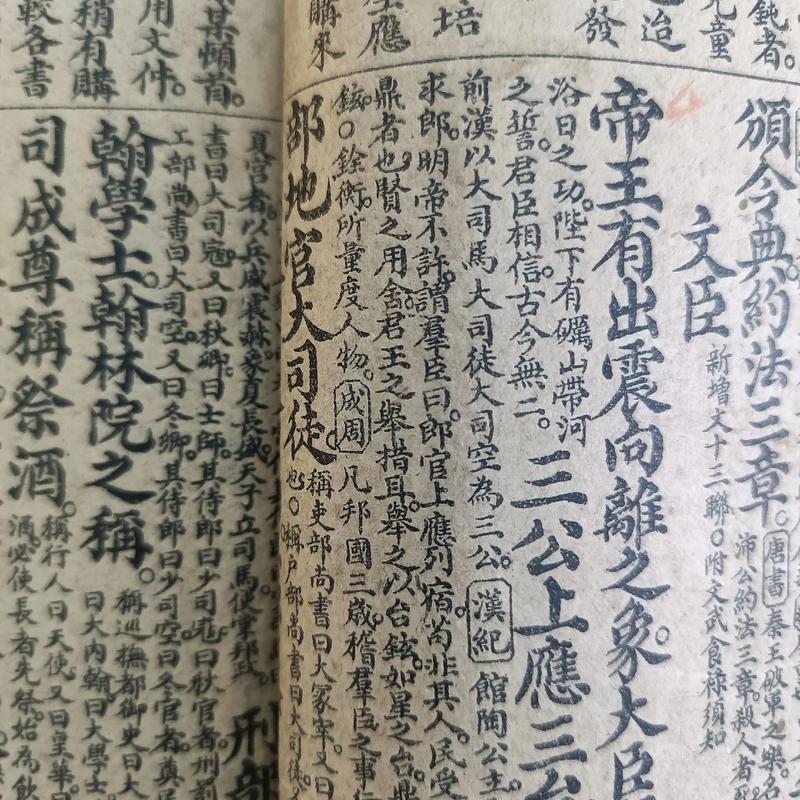 鈍者。
元童
迨
發
培
應
購來
某頓首。
用文件。
稍有購
較各書
頒令典約法三章。唐書秦王破軍之樂名
沛公約法三章殺人者
文臣 新增文十三聯〇附文武食祿須知
帝王有出震向離之象。大臣
浴日之功。陛下有礪山帶河
之誓。君臣相信。古今無二。三公上應三
前漢以大司馬大司徒大司空為三公。漢紀館陶公主
求郎。明帝不許。謂羣臣曰。郎官上應列宿。苟非其人。民受
鼎者也。賢之用舍。君王之舉措耳。舉之以台鉉。如星之台鼎
鉉〇銓衡。所量度人物。成周凡邦國三歲稽羣臣之事
部地官大司徒。稱吏部尚書曰大冢宰。又曰
也〇稱戶部尚書曰大司徒
夏官者。以兵威震赫象夏長盛天子立司馬使掌邦政。
書曰大司寇。又曰秋卿曰士師其侍郎曰少司寇曰秋官者。刑罰 刑部
工部尚書曰大司空。又曰冬卿。其侍郎曰少司空。曰冬官者。
翰學士。翰林院之稱。稱巡撫都御史曰大
曰大內翰曰大學士
司成尊稱祭酒。稱行人曰天使。又曰皇華
酒必使長者先祭。始為飲